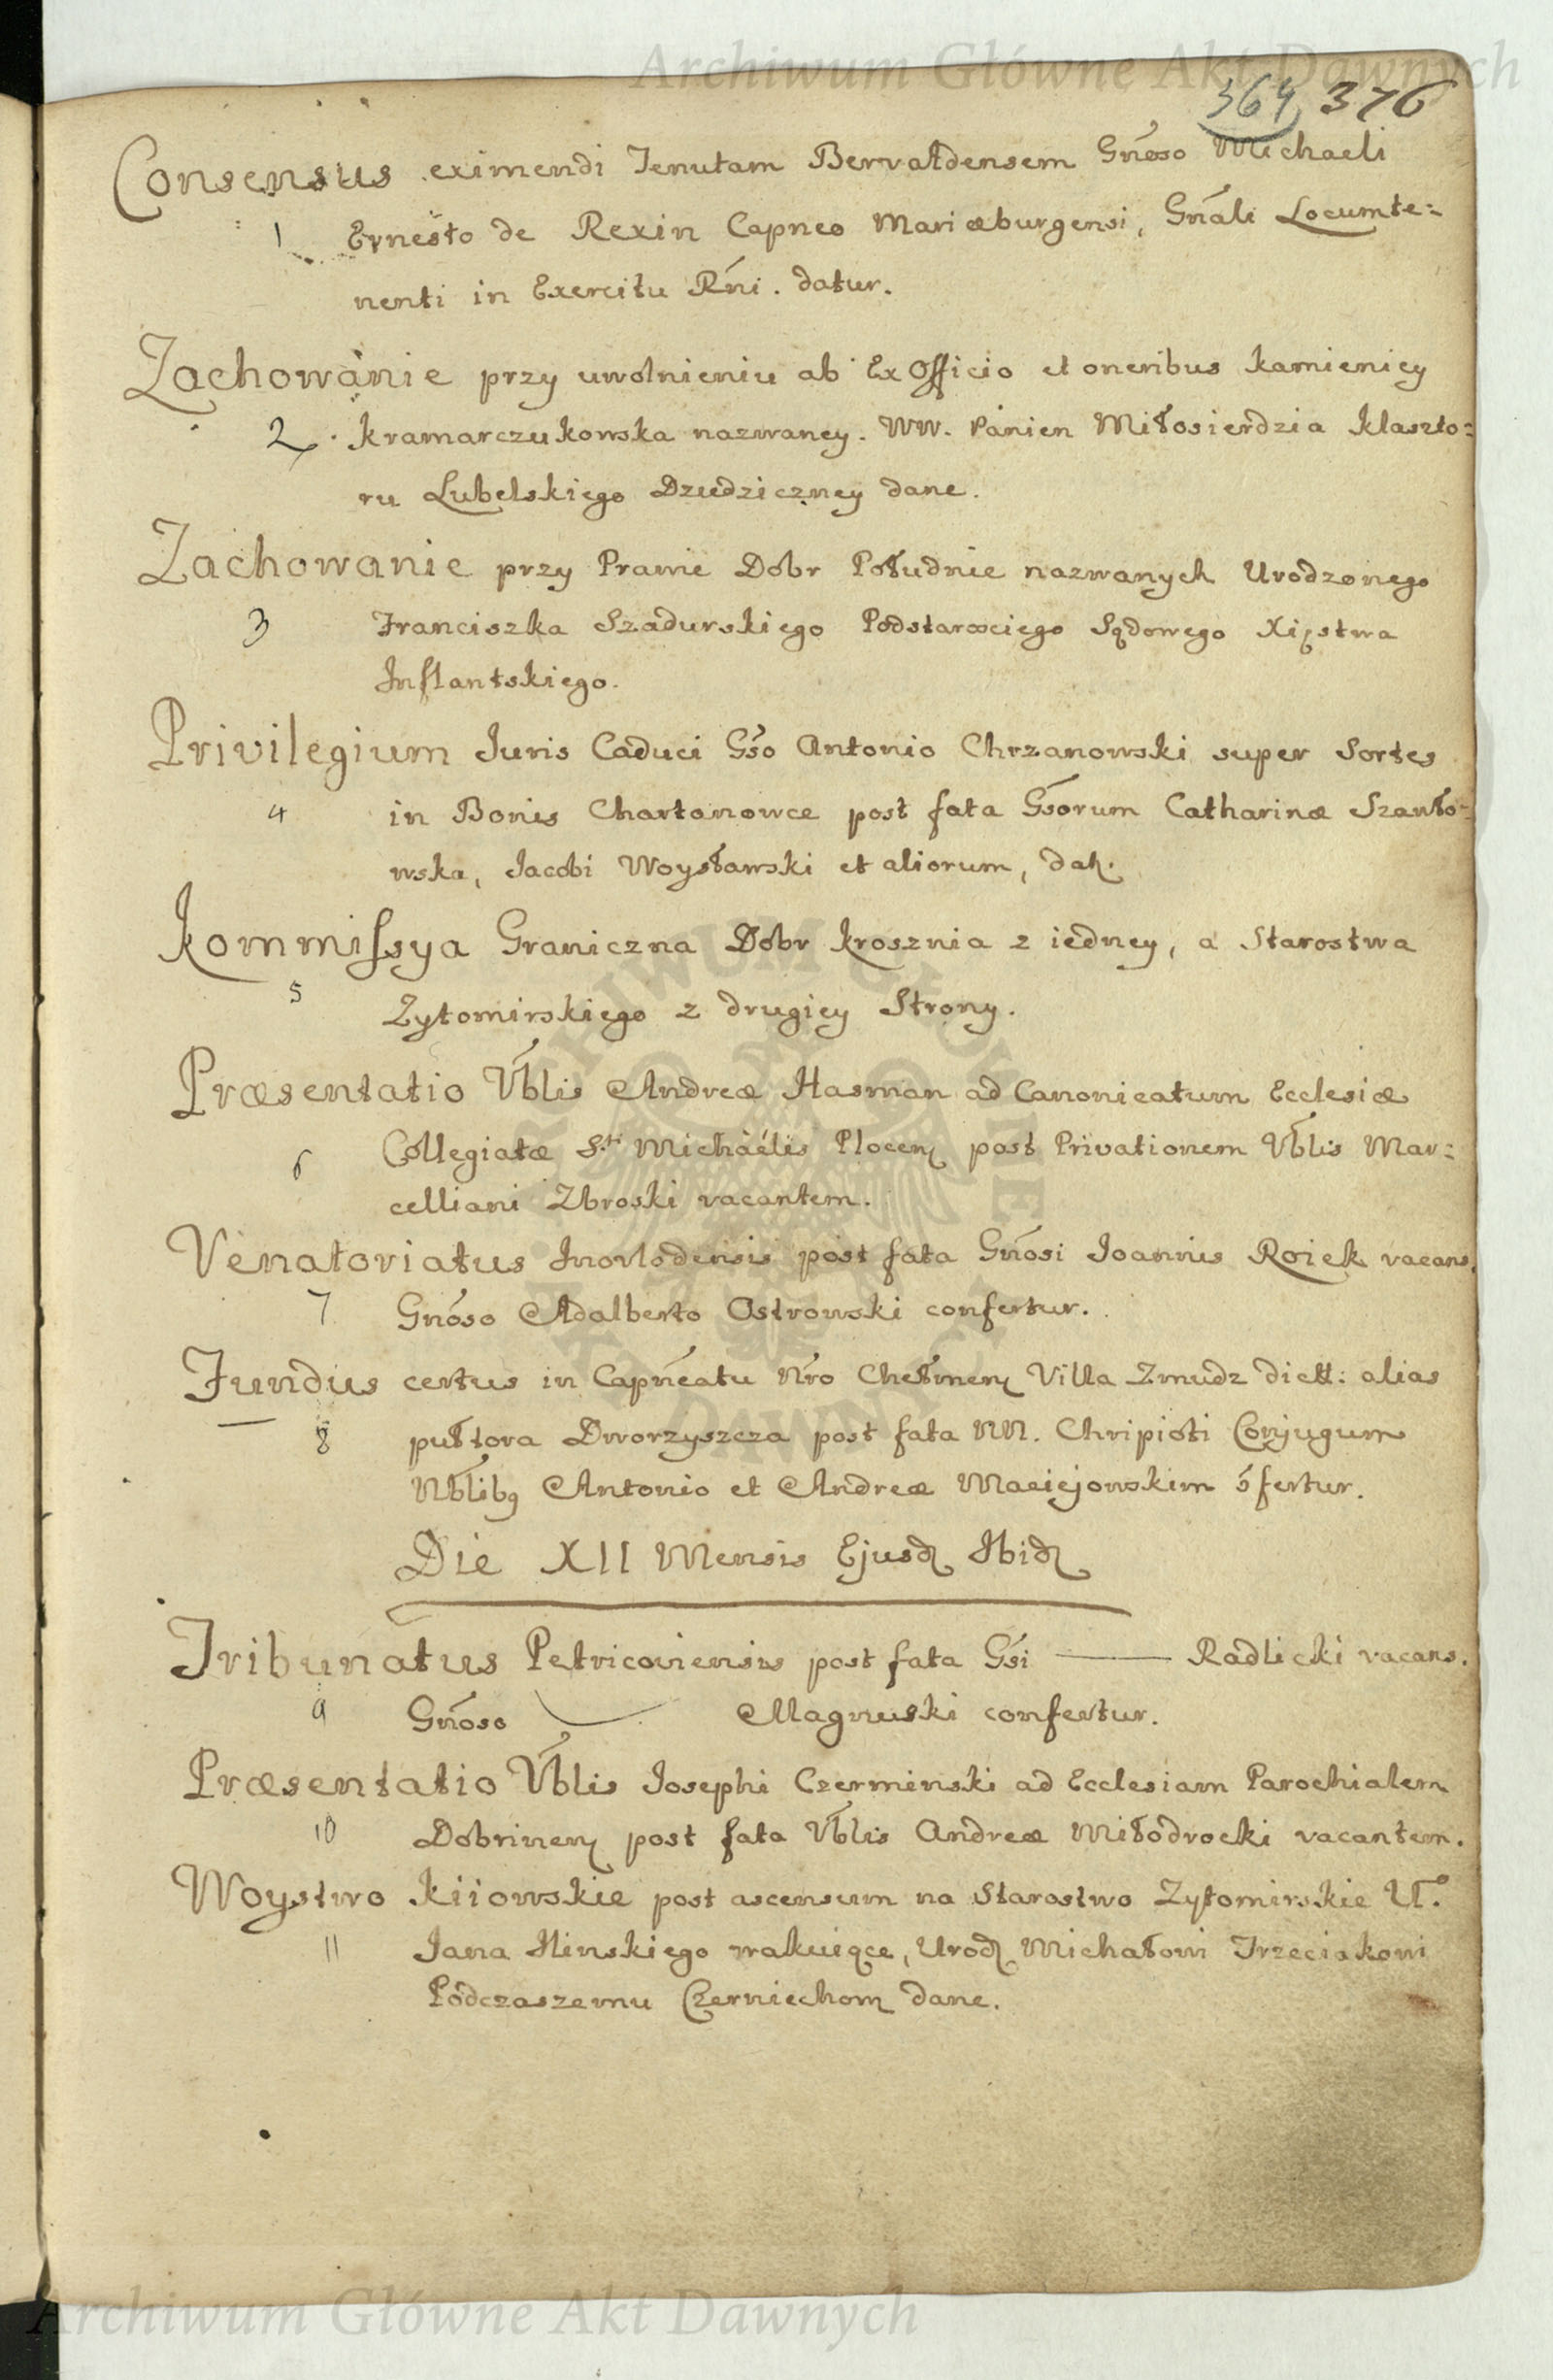 Archiwum Główne Akt Dawnych
364 376
Consensus eximendi Tenutam Bervaldensem Gñoso Michaeli
1 Ernesto de Rexin Capneo Mariæburgensi, Gnáli Locumte=
nenti in Exercitu Rńi. datur.
Zachowanie przy uwolnieniu ab Ex Officio et oneribus kamienicy
2 kramarczukowska nazwaney. WW. Panien Miłosierdzia klaszto=
ru Lubelskiego Dziedziczney dane.
Zachowanie przy Prawie Dobr Południe nazwanych Urodzonego
3 Franciszka Szadurskiego Podstarościego Sądowego Xięstwa
Inflantskiego.
Privilegium Juris Caduci Gso Antonio Chrzanowski super Sortes
4 in Bonis Chartanowce post fata Gsorum Catharinæ Szawło=
wska, Jacobi Woysławski et aliorum, dat.
kommissya Graniczna Dobr krosznia z iedney, a Starostwa
5 Zytomirskiego z drugiey Strony.
Præsentatio Vblis Andreæ Hasman ad Canonicatum Ecclesiæ
6 Collegiatæ Sti Michaelis Plocen post Privationem Vblis Mar=
celliani Zbroski vacantem.
Venatoriatus Inovlodensis post fata Gnosi Joannis Roiek vacans.
7 Gnoso Adalberto Ostrowski confertur.
Fundus certus in Capneatu Nro Chełmen Villa Zmudz dictt: alias
8 pułtora Dworzyszcza post fata NN. Chripioti Conjugum
Nblibg Antonio et Andreæ Maciejowskim ɔ̃fertur.
Die XII Mensis Ejusd Ibid
Tribunatus Petricoviensis post fata Gsi —— Radlicki vacans.
9 Gnoso Magnuski confertur.
Præsentatio Vblis Josephi Czerminski ad Ecclesiam Parochialem
10 Dobrinen post fata Vblis Andreæ Miłodrocki vacantem.
Woystwo kiiowskie post ascensum na Starostwo Zytomirskie U.
11 Jana Ilinskiego wakuiące, Urod Michałowi Trzeciakowi
Podczaszemu Czerniechom dane.
Archiwum Główne Akt Dawnych